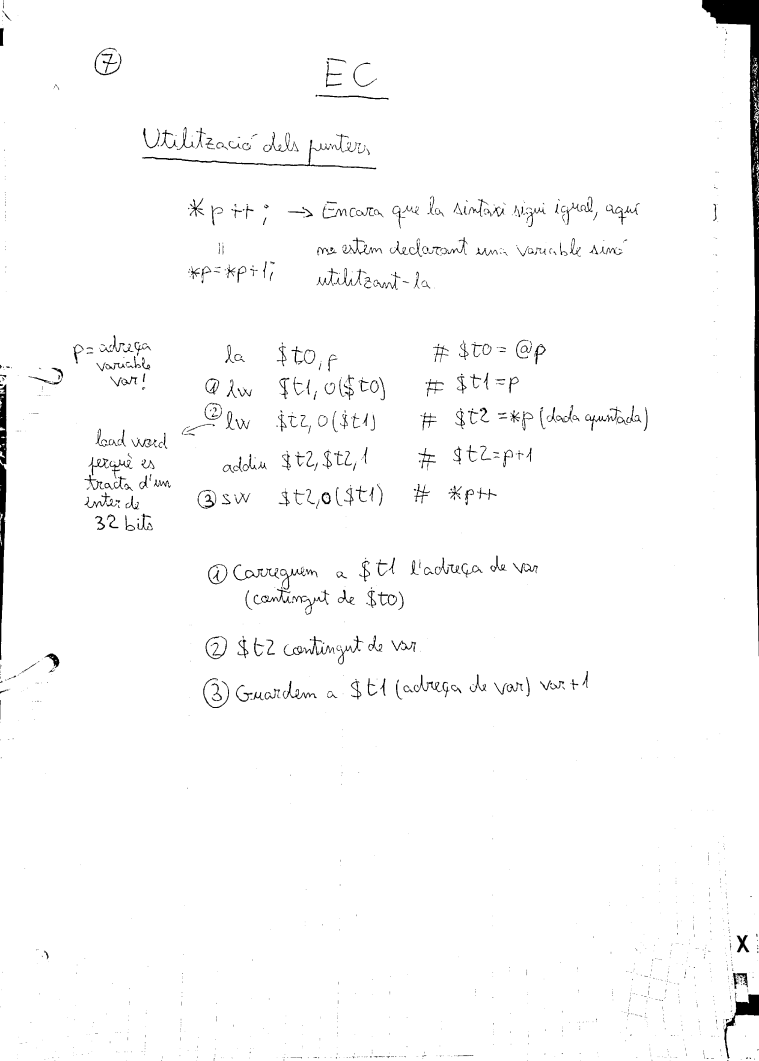 7
EC
Utilització dels punters
*p++; → Encara que la sintaxi sigui igual, aquí
no estem declarant una variable sinó
utilitzant-la
=
*p=*p+1;
p = adreça
variable
var!
la $t0, p # $t0 = @p
① lw $t1, 0($t0) # $t1=p
② lw $t2, 0($t1) # $t2 = *p (dada apuntada)
addiu $t2, $t2, 1 # $t2=p+1
③ sw $t2, 0($t1) # *p++
load word
perquè es
tracta d'un
enter de
32 bits
① Carreguem a $t1 l'adreça de var
(contingut de $t0)
② $t2 contingut de var
③ Guardem a $t1 (adreça de var) var+1
X